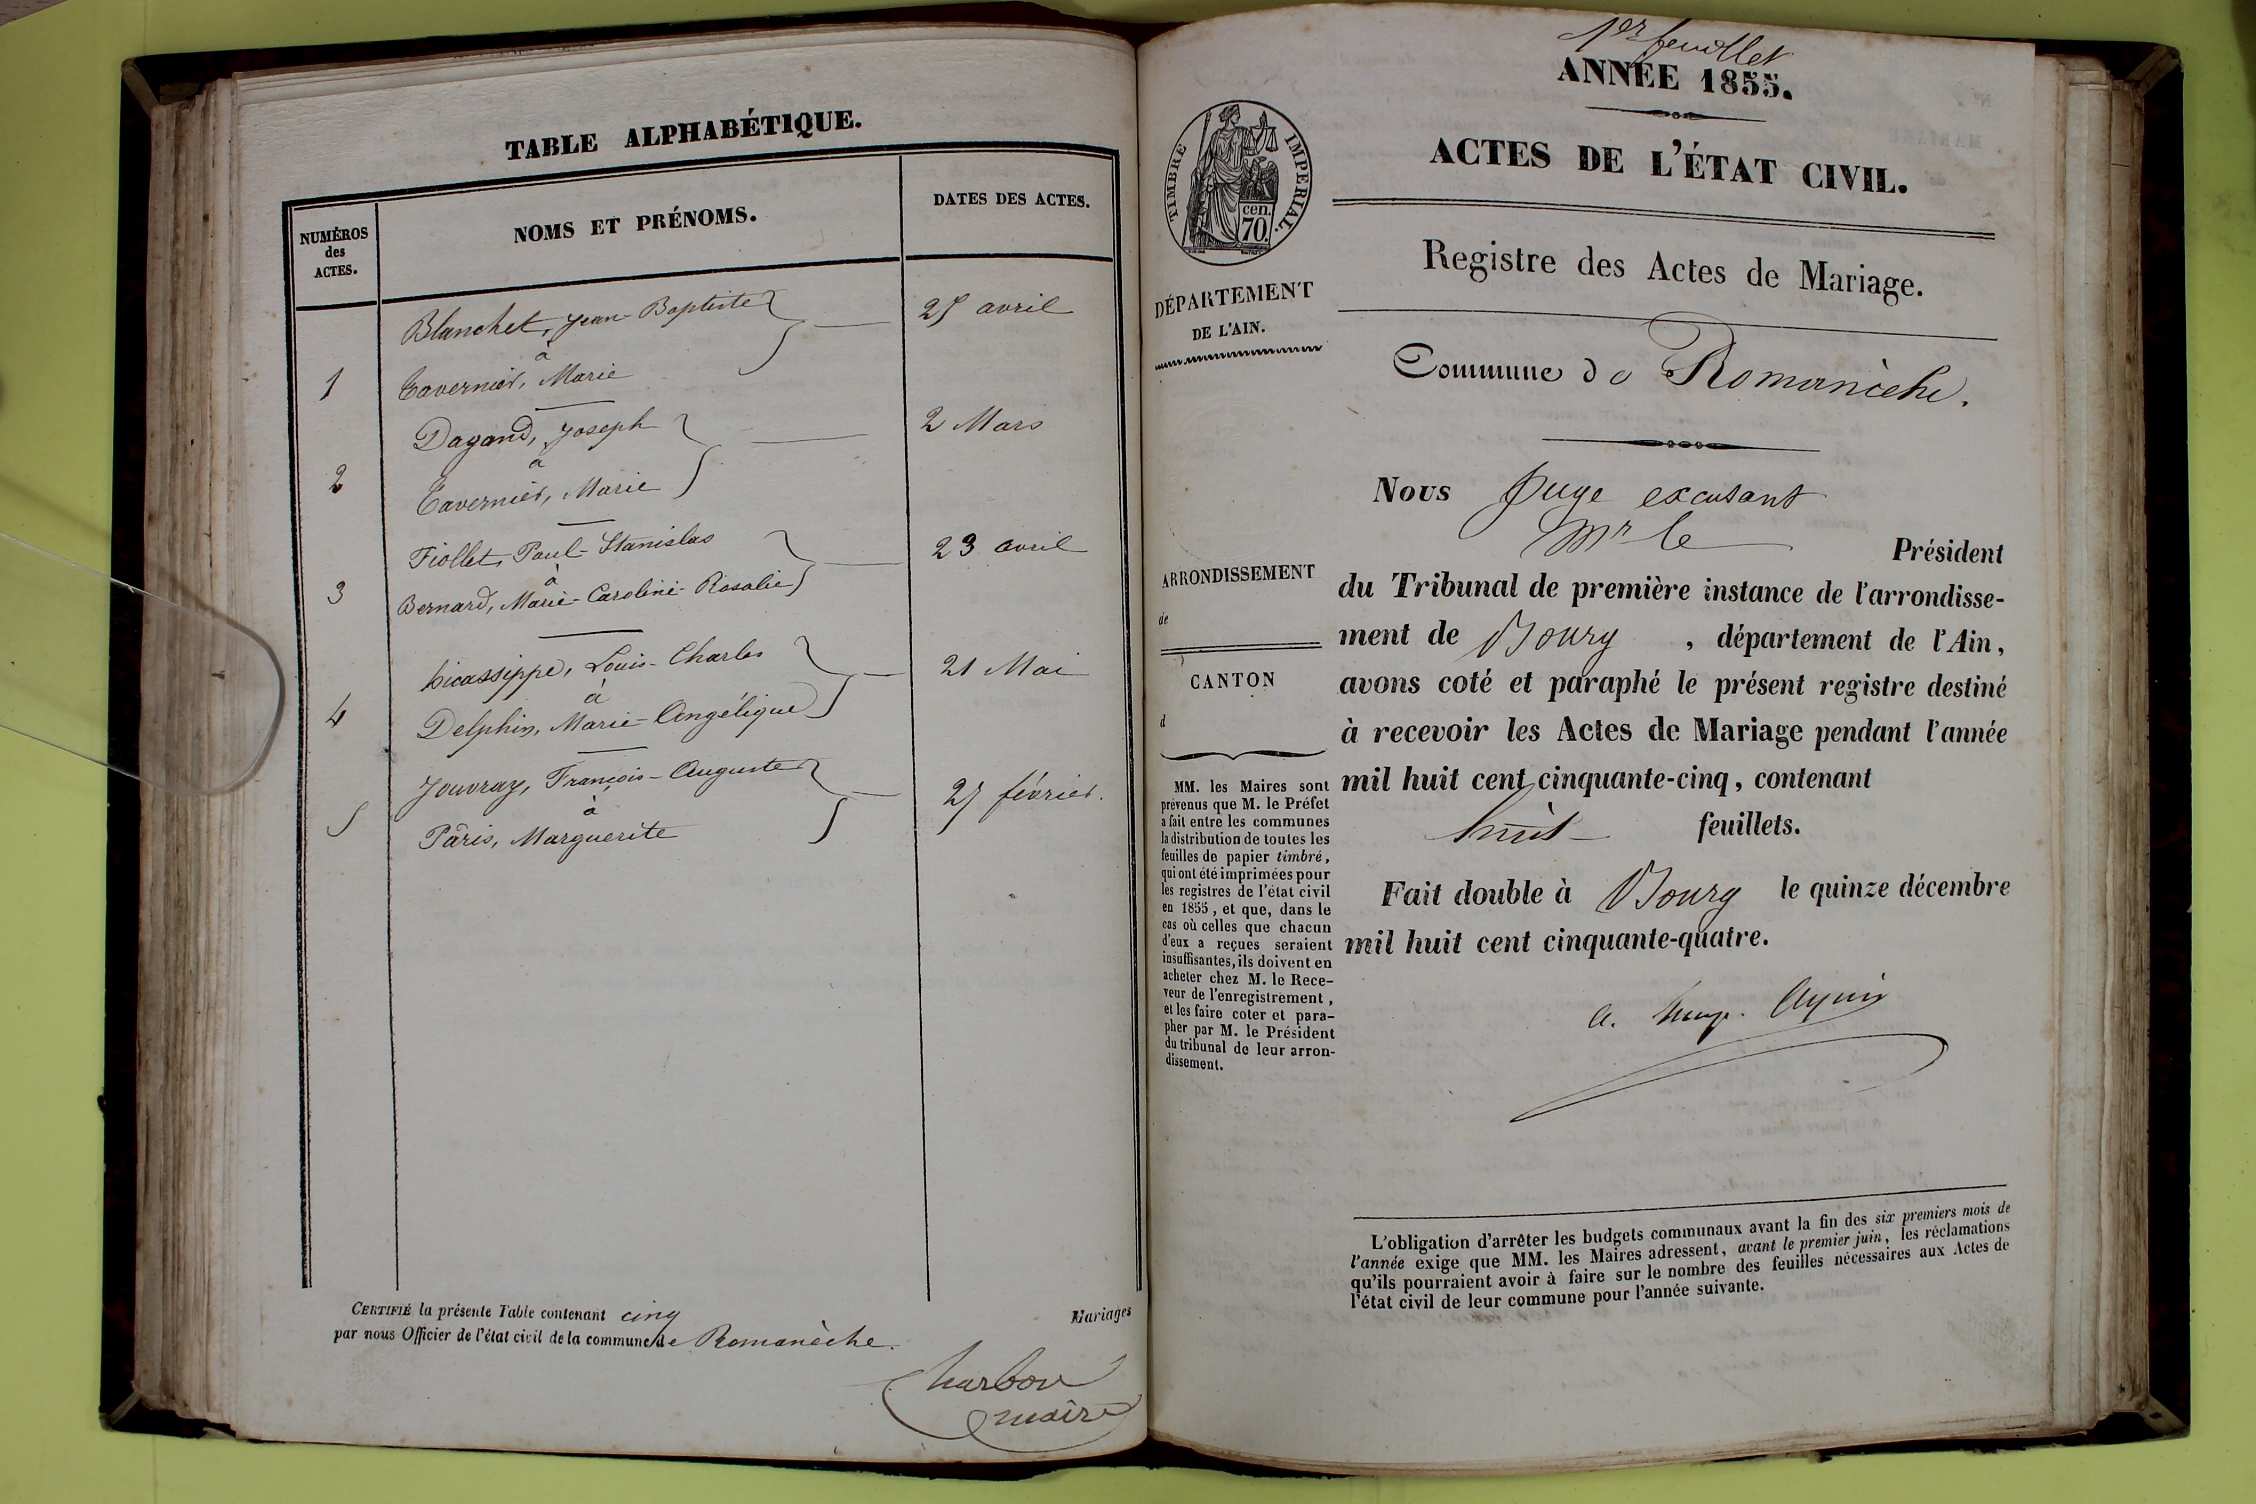 TABLE ALPHABÉTIQUE.
NUMÉROS
des
ACTES.
NOMS ET PRÉNOMS.
DATES DES ACTES.
Blanchet, Jean-Baptiste
25 avril
à
1
Tavernier, Marie
Dagand, Joseph
2 Mars
à
2
Tavernier, Marie
Fiollet, Paul-Stanislas
23 avril
à
3
Bernard, Marie-Caroline-Rosalie
Louis-Charles
21 Mai
à
4
Delphin, Marie-Angélique
Jouvray, François-Auguste
25 février.
à
5
Pâris, Marguerite
CERTIFIÉ la présente Table contenant cinq Mariages
par nous Officier de l'état civil de la commune de Romanèche.
Charbon
maire
1er feuillet
ANNÉE 1855.
ACTES DE L'ÉTAT CIVIL.
TIMBRE IMPERIAL.
cen.
70
Registre des Actes de Mariage.
DÉPARTEMENT
DE L'AIN.
Commune de Romanèche.
Nous Juge excusant
Mr le Président
du Tribunal de première instance de l'arrondisse-
ment de Bourg, département de l'Ain,
avons coté et paraphé le présent registre destiné
à recevoir les Actes de Mariage pendant l'année
mil huit cent cinquante-cinq, contenant
huit feuillets.
Fait double à Bourg le quinze décembre
mil huit cent cinquante-quatre.
ARRONDISSEMENT
de
CANTON
d
MM. les Maires sont
prévenus que M. le Préfet
a fait entre les communes
la distribution de toutes les
feuilles de papier timbré,
qui ont été imprimées pour
les registres de l'état civil
en 1855, et que, dans le
cas où celles que chacun
d'eux a reçues seraient
insuffisantes, ils doivent en
acheter chez M. le Rece-
veur de l'enregistrement,
et les faire coter et para-
pher par M. le Président
du tribunal de leur arron-
dissement.
L'obligation d'arrêter les budgets communaux avant la fin des six premiers mois de
l'année exige que MM. les Maires adressent, avant le premier juin, les réclamations
qu'ils pourraient avoir à faire sur le nombre des feuilles nécessaires aux Actes de
l'état civil de leur commune pour l'année suivante.